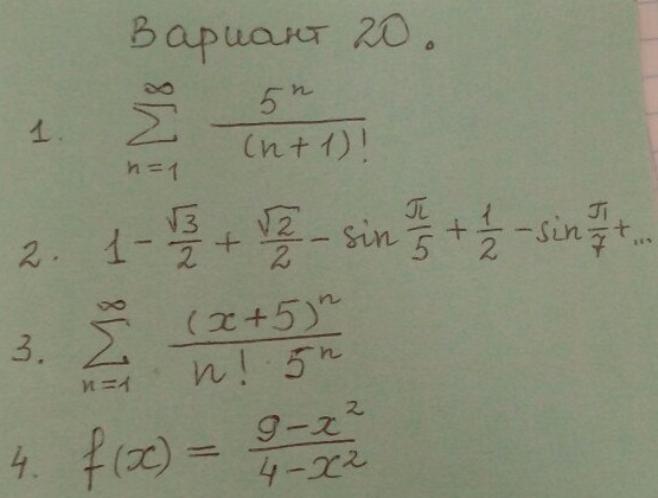 Вариант 20.
1. \sum_{n=1}^{\infty} \frac{5^n}{(n+1)!}
2. 1 - \frac{\sqrt{3}}{2} + \frac{\sqrt{2}}{2} - sin \frac{π}{5} + \frac{1}{2} - sin \frac{π}{7} + ...
3. \sum_{n=1}^{\infty} \frac{(x+5)^n}{n! \cdot 5^n}
4. f(x) = \frac{9-x^2}{4-x^2}